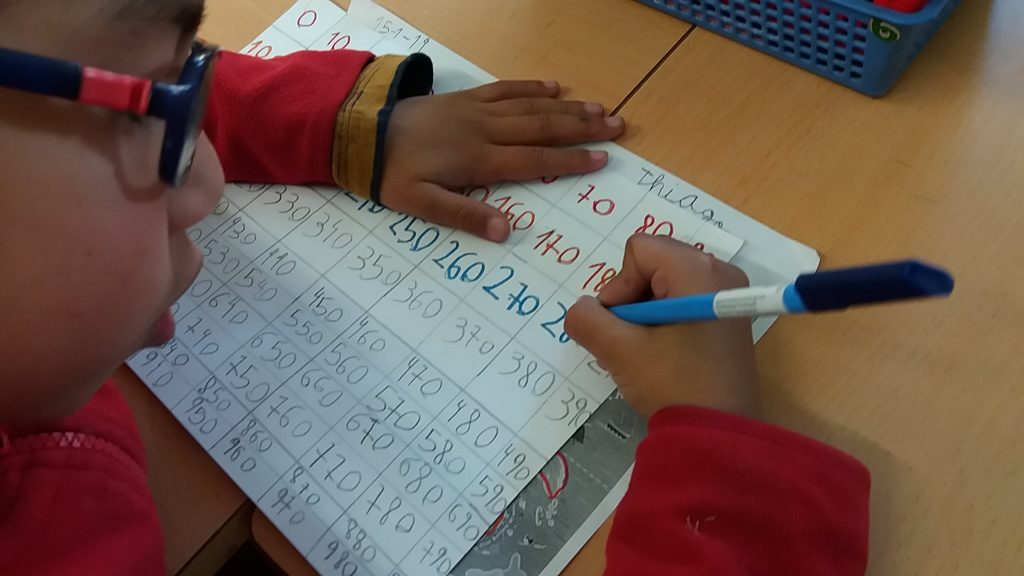 0
10 10
151-19
Thiago
70 80
160 170 18
250 260 270 28
330 340 350 360 370 380 390
430 440 450 460 470 480 490
530 540 550 560 570 580 590
640 650 660 670 680 670
740 750 760 770 780 790
850 860 870 880
910 950 960 970 980